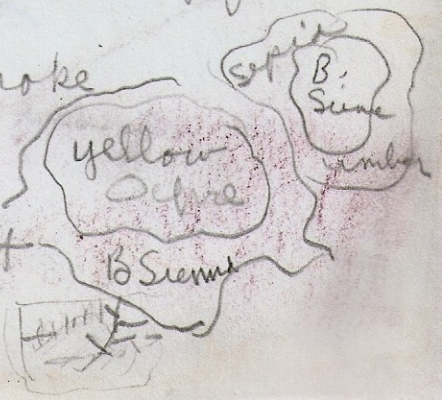 sepia
B.
Siene
umber
yellow
Ochre
B Sienna